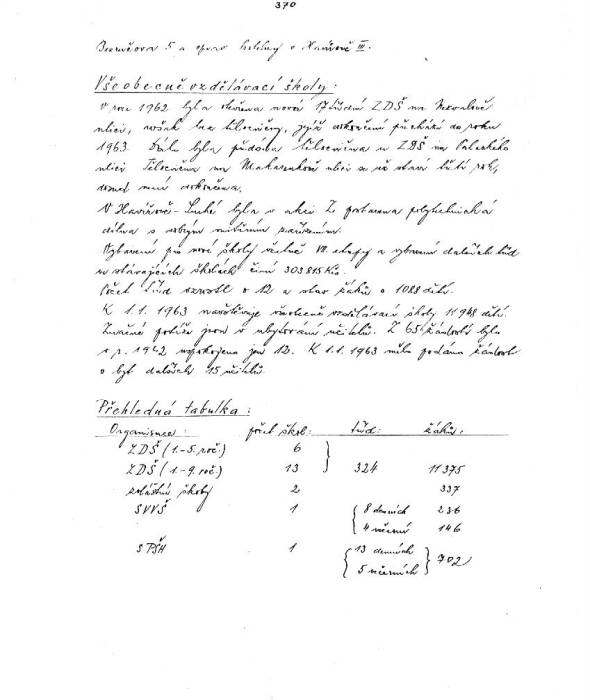 370
5 a oprav budovy v Havířově III.
Všeobecně vzdělávací školy:
V roce 1962 byla otevřena nová 17 třídní ZDŠ na Nezvalově
ulici, avšak bez tělocvičny, jejíž dokončení přechází do roku
1963. Dále byla předána tělocvična u ZDŠ na Palackého
ulici. Tělocvična na Makarenkově ulici se již staví třetí rok,
dosud není dokončena.
V Havířově-Suché byla v akci Z postavena polytechnická
dílna s dobrým vnitřním zařízením.
Vybavení pro nové školy včetně VII. etapy a vybavení dalších tříd
ve stávajících školách činí 303 815 Kčs.
Počet tříd vzrostl o 12 a stav žáků o 1088 dětí.
K 1.1.1963 navštěvuje všeobecně vzdělávací školy 11 948 dětí.
Značné potíže jsou v ubytování učitelů. Z 65 žádostí bylo
v r. 1962 uspokojeno jen 12. K 1.1.1963 měla podáno žádost
o byt dalších 15 učitelů.
Přehledná tabulka:
Organisace: počet škol: tříd: žáků:
ZDŠ (1.-5. roč.) 6
ZDŠ (1.-9. roč.) 13 324 11 375
zvláštní školy 2 337
SVVŠ 1 8 denních 236
4 večerní 146
SPŠH 1 13 denních 702
5 večerních